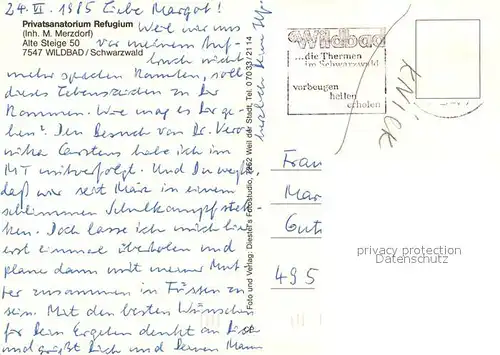 24. VI. 1985 Liebe Margot!
Privatsanatorium Refugium
(Inh. M. Merzdorf)
Alte Steige 50
7547 WILDBAD / Schwarzwald
Weil wir uns
vor meinem Auf-
bruch nicht
mehr sprechen konnten, soll
dieses Lebenszeichen zu Dir
kommen. Wie mag es Dir ge-
hen? Den Besuch von Dr. Vero
nika Carstens habe ich im
MT mitverfolgt. Und Du weißt,
daß wir seit März in einem
schlimmen Schulkampf steh-
cken. Doch lasse ich mich hier
erst einmal überholen und
plane dann mit meiner Mut
ter zusammen in Füssen zu
sein. Mit den besten Wünschen
für Dein Ergehen denkt an Dich
und grüßt Dich und Deinen Mann
herzlich Deine
Foto und Verlag: Diester's Fotostudio, 7252 Weil der Stadt, Tel. 07033/2114
Wildbad
...die Thermen
im Schwarzwald
vorbeugen
heilen
erholen
KNICK
Frau
Mar
Gut
495
privacy protection
Datenschutz